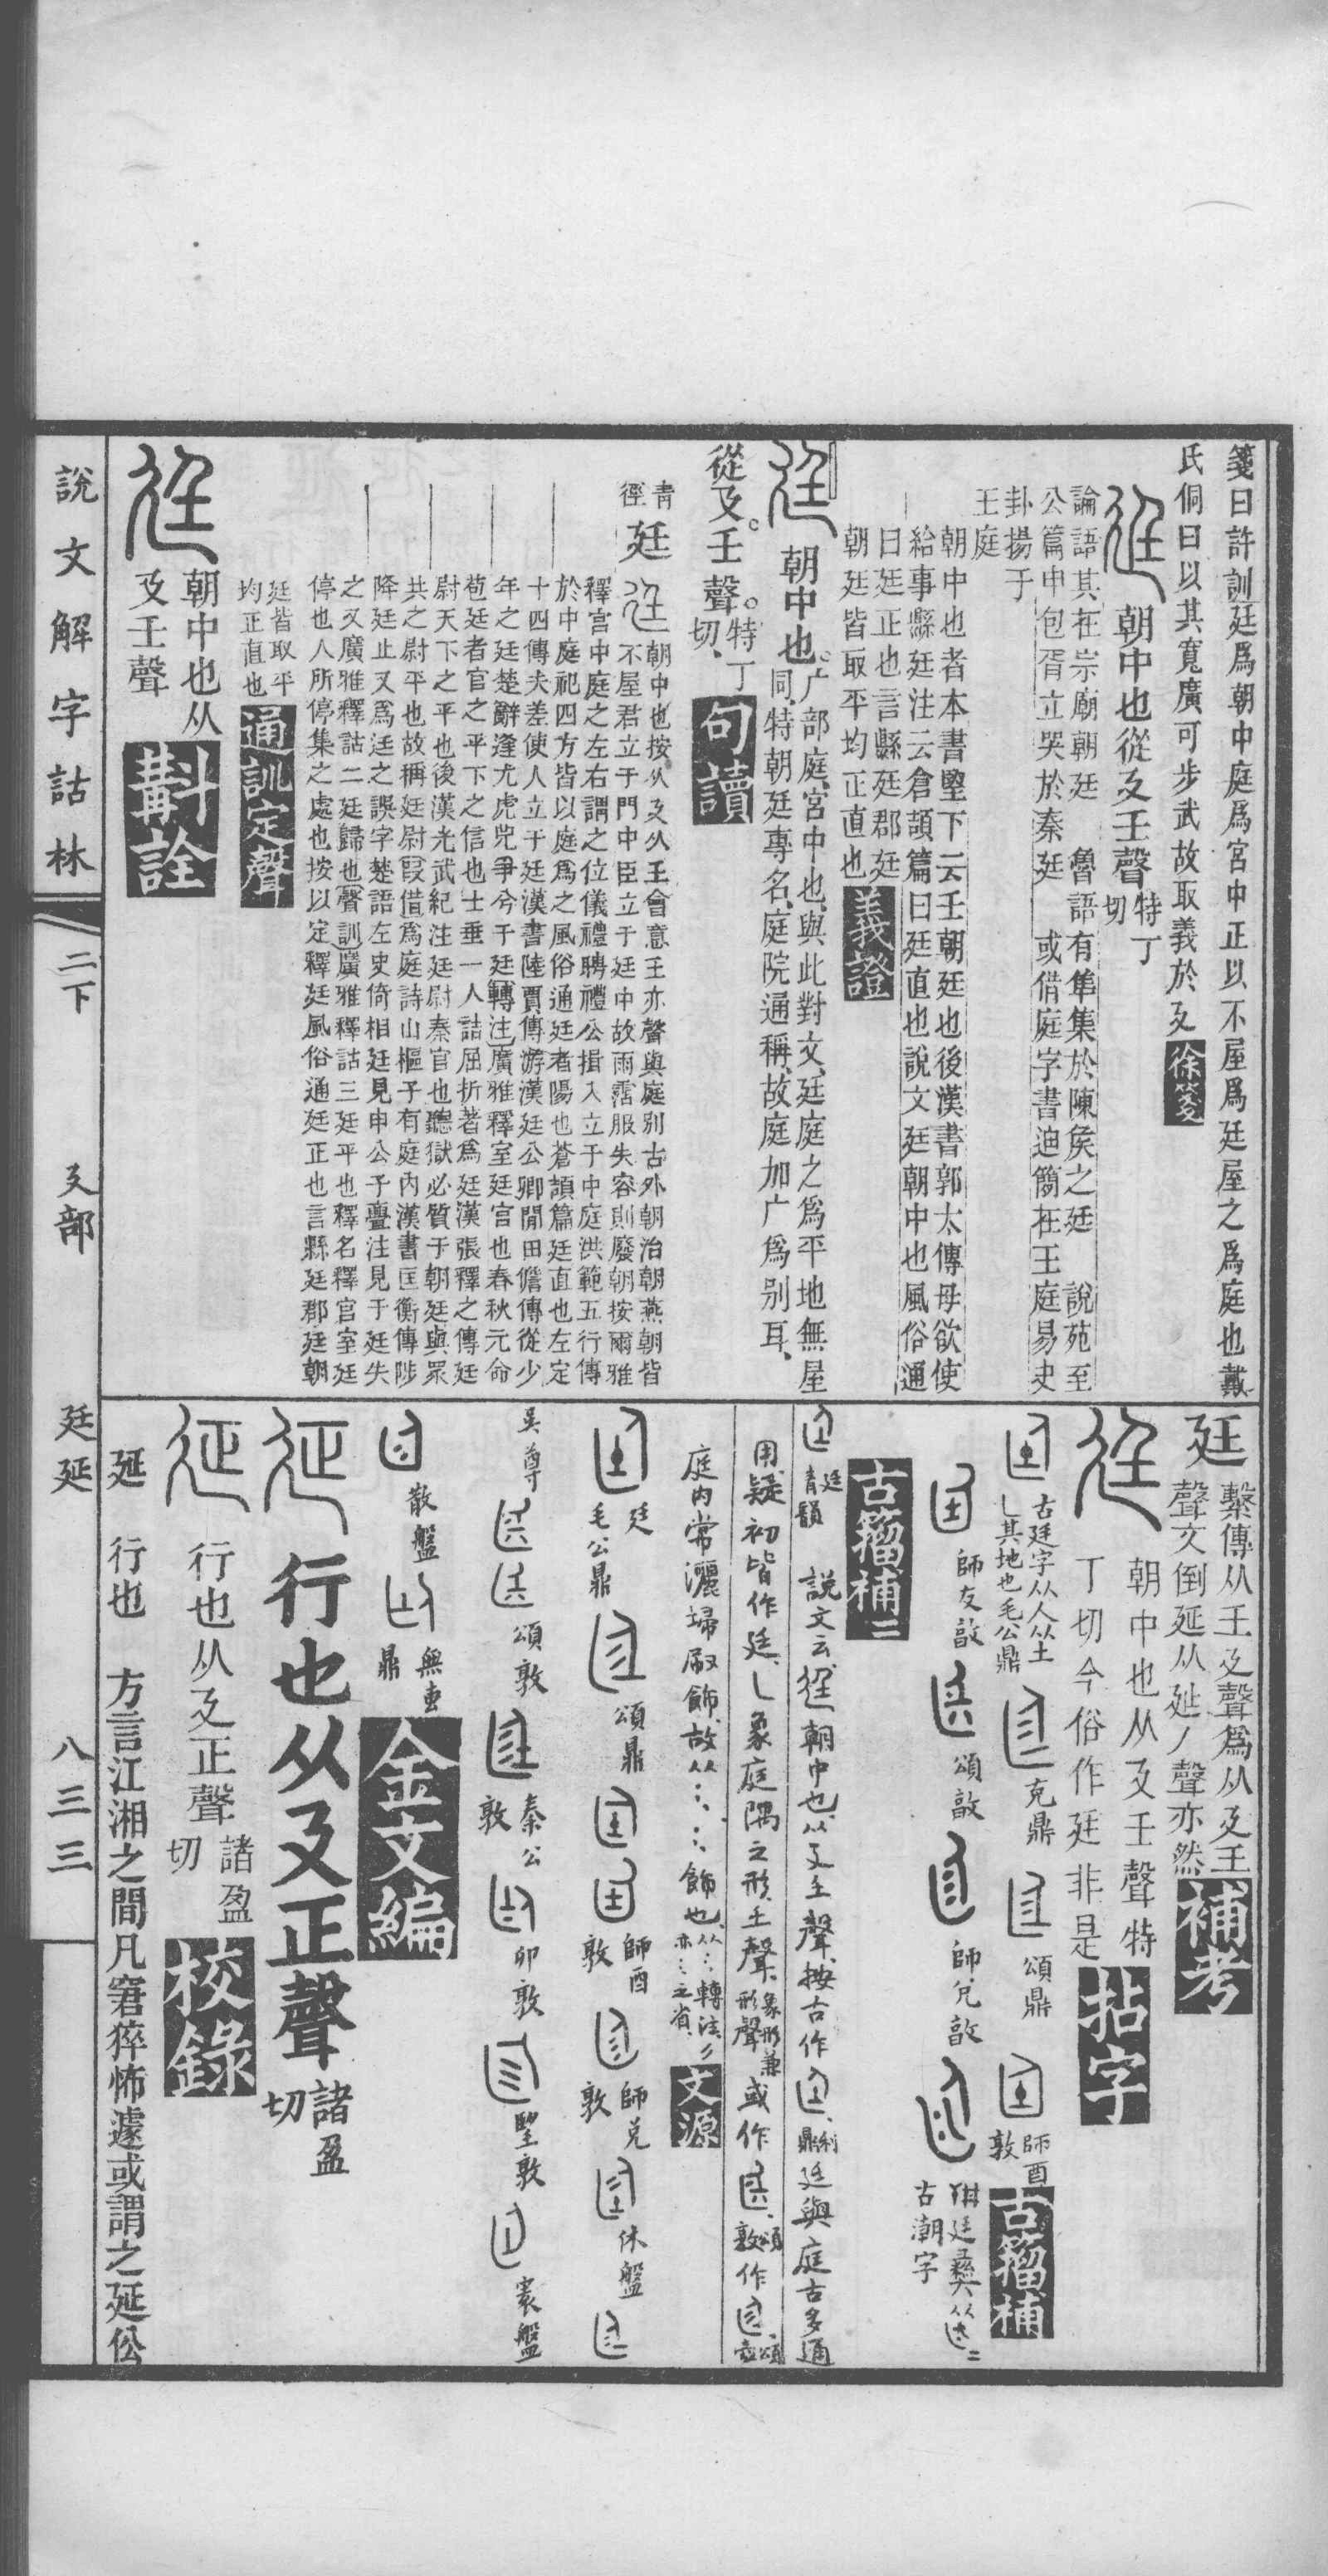 箋曰許訓廷爲朝中庭爲宮中正以不屋爲廷屋之爲庭也戴
氏侗曰以其寬廣可步武故取義於廴徐箋
朝中也從廴壬聲特丁切
論語其在宗廟朝廷 魯語有隼集於陳矦之廷 說苑至
公篇申包胥立哭於秦廷 或借庭字書迪簡在王庭易夬
卦揚于
王庭
朝中也者本書壂下云壬朝廷也後漢書郭太傳母欲使
給事縣廷注云倉頡篇曰廷直也說文廷朝中也風俗通
曰廷正也言縣廷郡廷
朝廷皆取平均正直也義證
朝中也。广部庭、宮中也、與此對文、廷庭之爲平地無屋
同、特朝廷專名、庭院通稱、故庭加广爲別耳、
從廴。壬聲。特丁切、句讀
青
徑
廷
朝中也按从廴从壬會意壬亦聲與庭別古外朝治朝燕朝皆
不屋君立于門中臣立于廷中故雨霑服失容則廢朝按爾雅
釋宮中庭之左右謂之位儀禮聘禮公揖入立于中庭洪範五行傳
於中庭祀四方皆以庭爲之風俗通廷者陽也蒼頡篇廷直也左定
十四傳夫差使人立于廷漢書陸賈傳游漢廷公卿閒田儋傳從少
年之廷楚辭逢尤虎兕爭兮于廷轉注廣雅釋室廷宮也春秋元命
苞廷者官之平下之信也士垂一人詰屈折著爲廷漢張釋之傳廷
尉天下之平也後漢光武紀注廷尉秦官也聽獄必質于朝廷與眾
共之尉平也故稱廷尉叚借爲庭詩山樞子有庭內漢書匡衡傳陟
降廷止又爲迋之誤字楚語左史倚相廷見申公子亹注見于廷失
之又廣雅釋詁二廷歸也聲訓廣雅釋詁三廷平也釋名釋宮室廷
停也人所停集之處也按以定釋廷風俗通廷正也言縣廷郡廷朝
廷皆取平
均正直也通訓定聲
朝中也从
廴壬聲斠詮
廷
繫傳从壬廴聲爲从廴壬
聲文倒延从㢟丿聲亦然補考
朝中也从廴壬聲特
丁切今俗作廷非是拈字
古廷字从人从土
乚其地也毛公鼎 克鼎 頌鼎 師酉敦古籀補
師友敦 頌敦 師兌敦 廷彝从
古潮字
古籀補二
廷青韻 說文云、朝中也、从廴壬聲、按古作、利鼎廷與庭古多通
用、疑初皆作廷、乚象庭隅之形、壬聲、象形兼形聲或作、頌敦作、頌壺
庭內常灑埽㕞飾、故从、飾也、从轉注亦之省、文源
廷
毛公鼎 頌鼎 師酉敦 師兌敦 休盤
吳尊 頌敦 秦公敦 卯敦 望敦 寰盤
散盤 無叀鼎 金文編
行也从廴正聲諸盈切
行也从廴正聲諸盈切校錄
延 行也 方言江湘之間凡窘猝怖遽或謂之延伀
說文解字詁林 二下 廴部 廷延 八三三